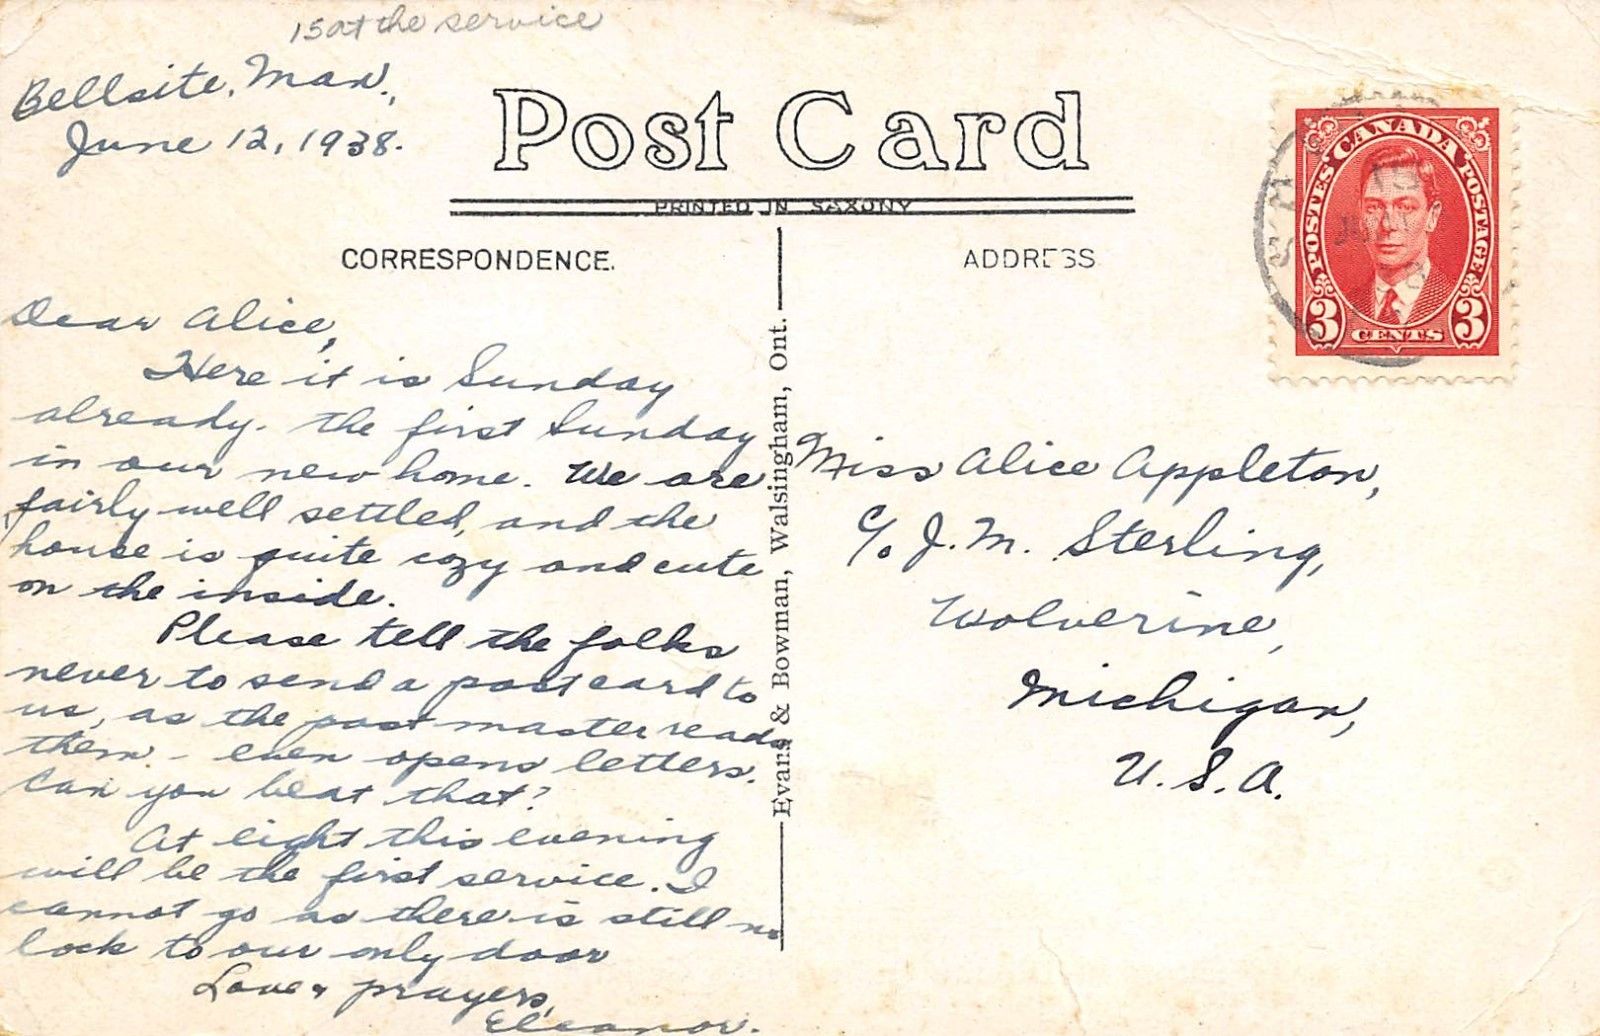 15 at the service
Bellsite, Man.,
June 12, 1938.
Post Card
PRINTED IN SAXONY
CORRESPONDENCE.
ADDRESS
Dear Alice,
Here it is Sunday
already. the first Sunday
in our new home. We are
fairly well settled, and the
house is quite cozy and cute
on the inside.
Please tell the folks
never to send a postcard to
us, as the postmaster reads
them - even opens letters.
Can you beat that?
At eight this evening
will be the first service. I
cannot go as there is still no
lock to our only door
Love & prayers,
Eleanor.
Evans & Bowman, Walsingham, Ont.
CANADA
POSTES POSTAGE
3 CENTS 3
Miss Alice Appleton,
c/o J. M. Sterling,
Wolverine,
Michigan,
U.S.A.